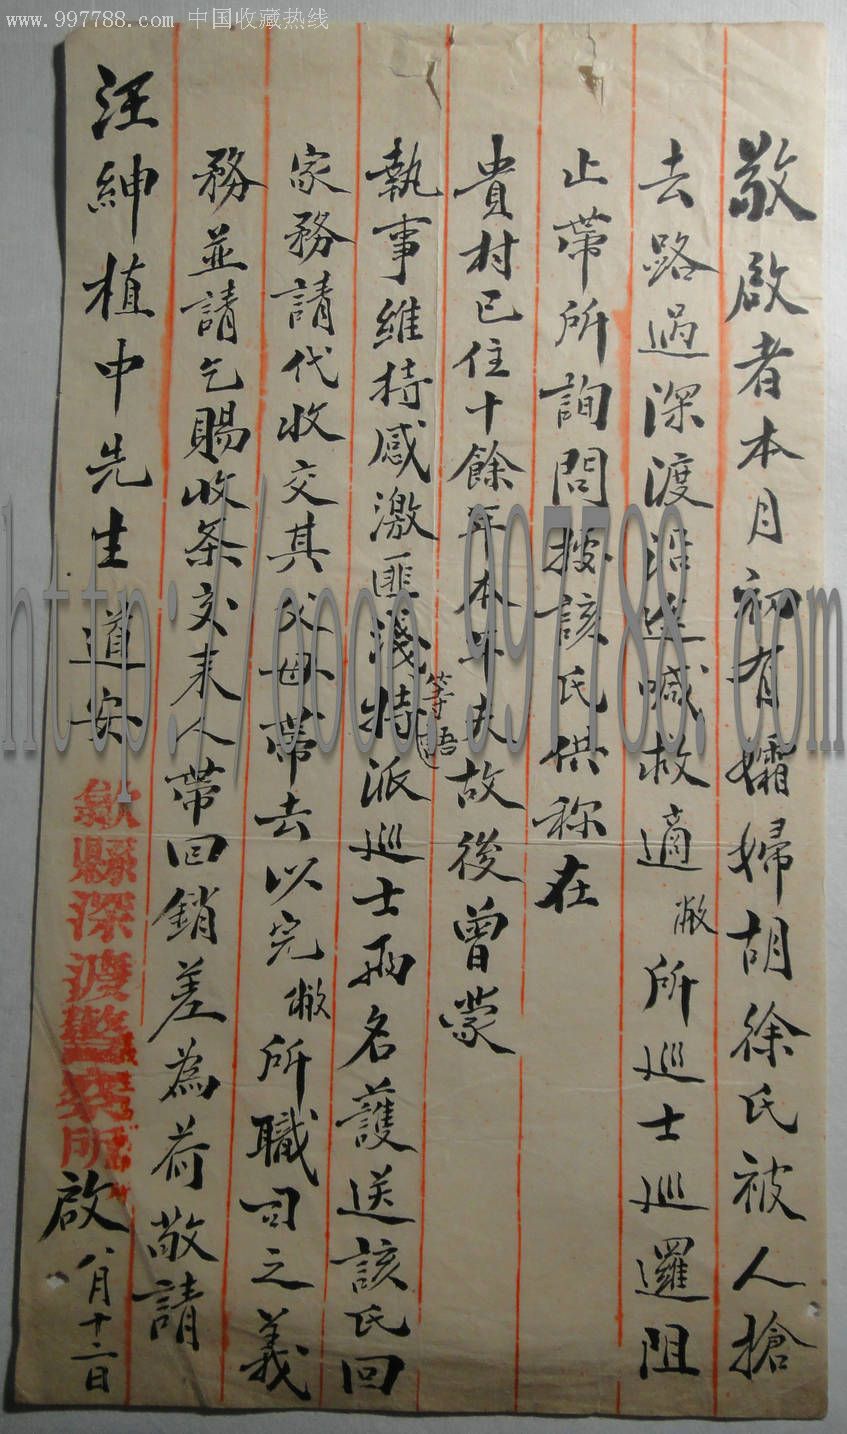 www.997788.com 中国收藏热线
敬啟者本月初有孀婦胡徐氏被人搶
去路過深渡沿途喊救適敝所巡士巡邏阻
止帶所詢問據該氏供称在
貴村已住十餘年本年夫故後曾蒙
執事維持感激匪淺等語特派巡士兩名護送該氏回
家務請代收交其父母帶去以完敝所職司之義
務並請乞賜收条交来人帶回銷差為荷敬請
汪紳植中先生道安 歙縣深渡警察所啟 八月十二日
http://oooo.997788.com